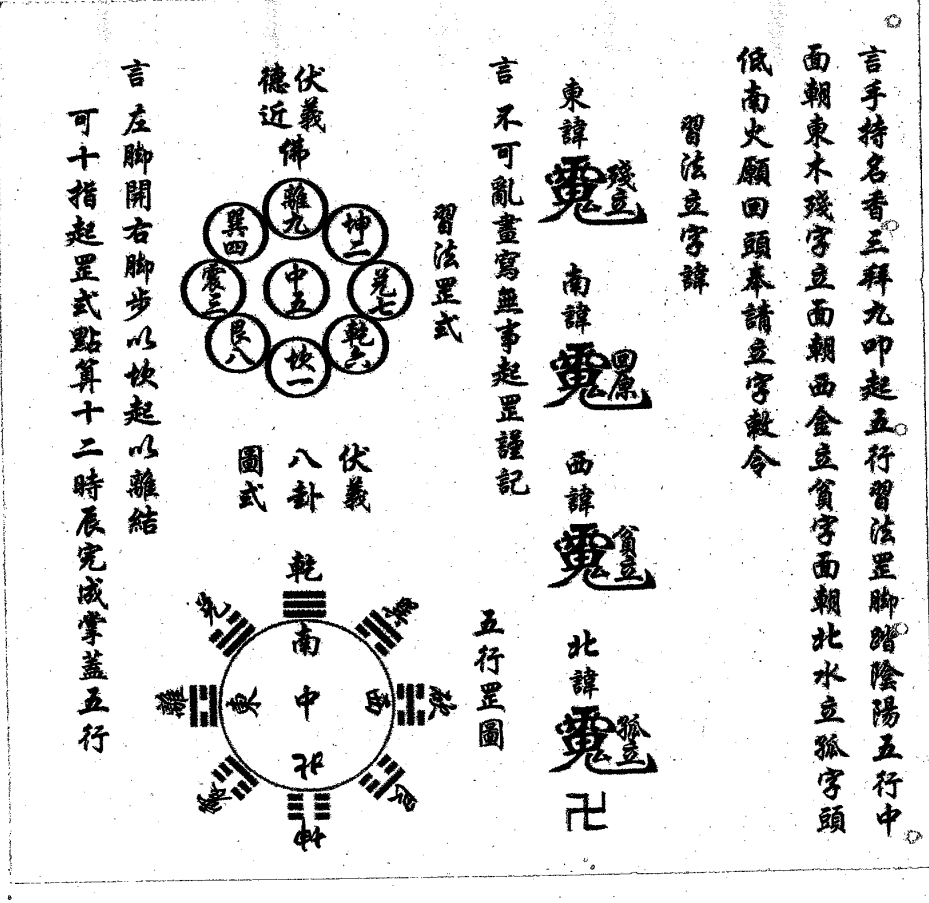 言手持名香三拜九叩起五行習法罡脚踏陰陽五行中
面朝東木殘字立面朝西金立貧字面朝北水立孤字頭
低南火願回頭奉請立字敕令
習法立字諱
東諱
殘立
南諱
回原
西諱
貧立
北諱
孤立
卍
言不可亂畫寫無事起罡謹記
五行罡圖
習法罡式
伏義
德近
佛
離九
巽四
坤二
震三
中五
兌七
艮八
乾六
坎一
伏義
八卦
圖式
乾
兌
巽
離
坎
震
艮
坤
南
東
中
西
北
言左脚開右脚步以坎起以離結
可十指起罡式點算十二時辰完成掌蓋五行